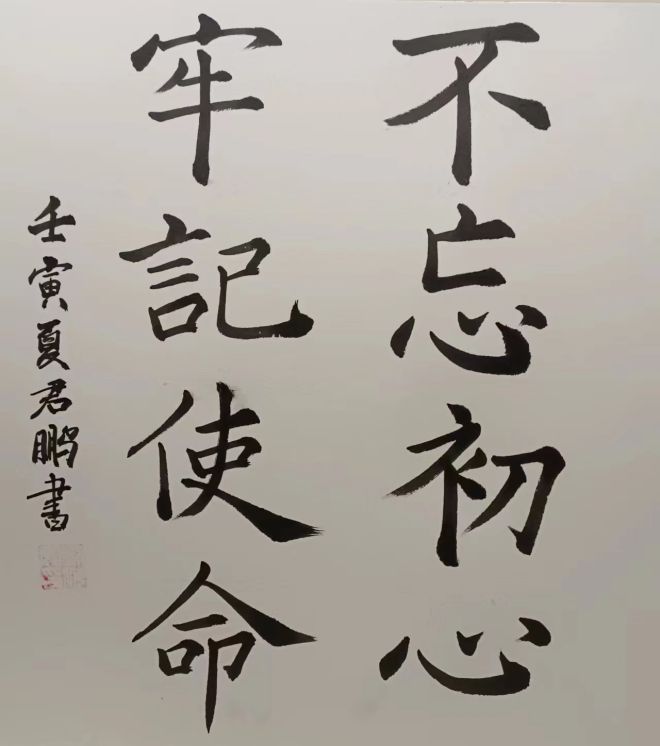 不忘初心
牢記使命
壬寅夏君鹏書